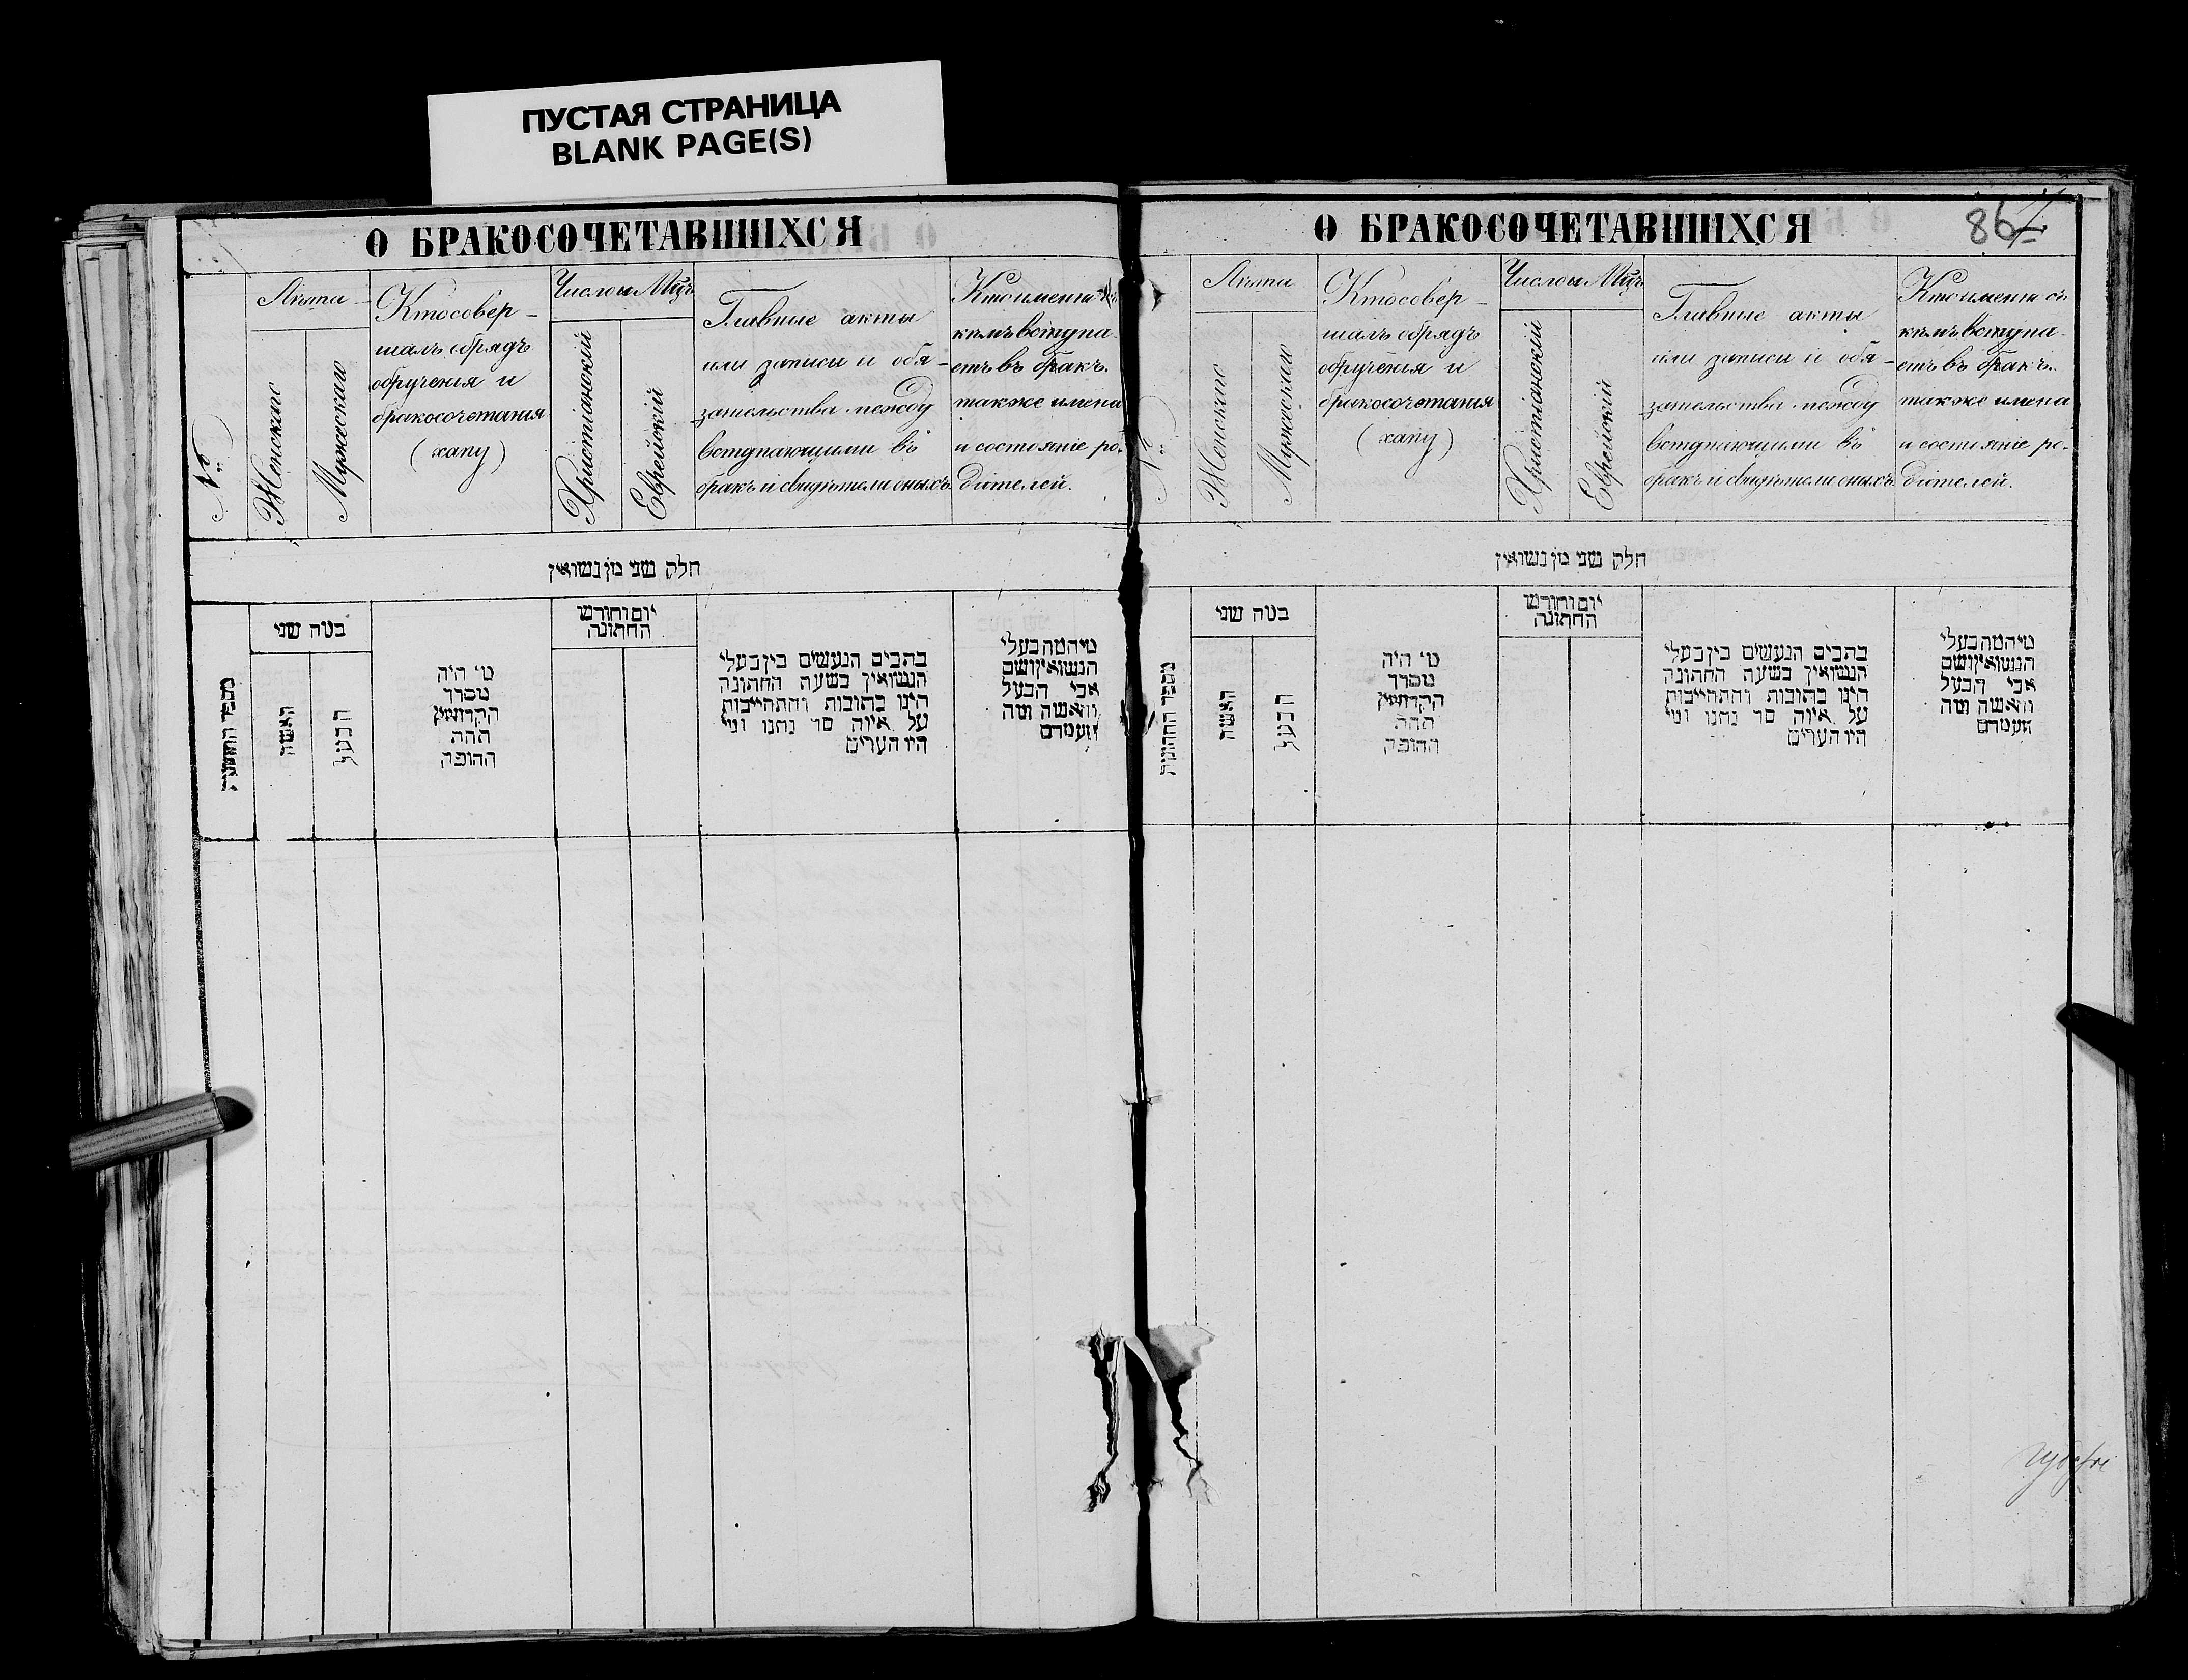 ПУСТАЯ СТРАНИЦА
BLANK PAGE(S)
О БРАКОСОЧЕТАВШИХСЯ
№
Лѣта
Женскаго
Мужескаго
Кто совер-
шалъ обрядъ
обрученія и
бракосочетанія
(хапу)
Число и Мцъ
Христіанскій
Еврейскій
Главные акты
или записи и обя-
зательства между
вступающими въ
бракъ и свидѣтели оныхъ
Кто именно съ
кѣмъ вступа-
етъ въ бракъ.
также имена
и состояніе ро-
дителей.
חלק שני מן נשואין
מספר החתונות
כמה שני
האשה
הבעל
מי היה
מסדר
הקדושין
ההופה
יום וחודש
החתונה
כתבים הנעשים בין בעלי
הנשואין בשעה החתונה
הינו כתובות והתחייבות
על איזה סך נתנו ומי
היו העדים
מיהמה בעלי
הנשואין ושם
אבי הבעל
והאשה ומה
מעמדם
О БРАКОСОЧЕТАВШИХСЯ
867
№
Лѣта
Женскаго
Мужескаго
Кто совер-
шалъ обрядъ
обрученія и
бракосочетанія
(хапу)
Число и Мцъ
Христіанскій
Еврейскій
Главные акты
или записи и обя-
зательства между
вступающими въ
бракъ и свидѣтели оныхъ
Кто именно съ
кѣмъ вступа-
етъ въ бракъ.
также имена
и состояніе ро-
дителей.
חלק שני מן נשואין
מספר החתונות
כמה שני
האשה
הבעל
מי היה
מסדר
הקדושין
ההופה
יום וחודש
החתונה
כתבים הנעשים בין בעלי
הנשואין בשעה החתונה
הינו כתובות והתחייבות
על איזה סך נתנו ומי
היו העדים
מיהמה בעלי
הנשואין ושם
אבי הבעל
והאשה ומה
מעמדם